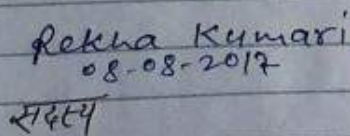 Rekha Kumari
08-08-2017
सदस्य